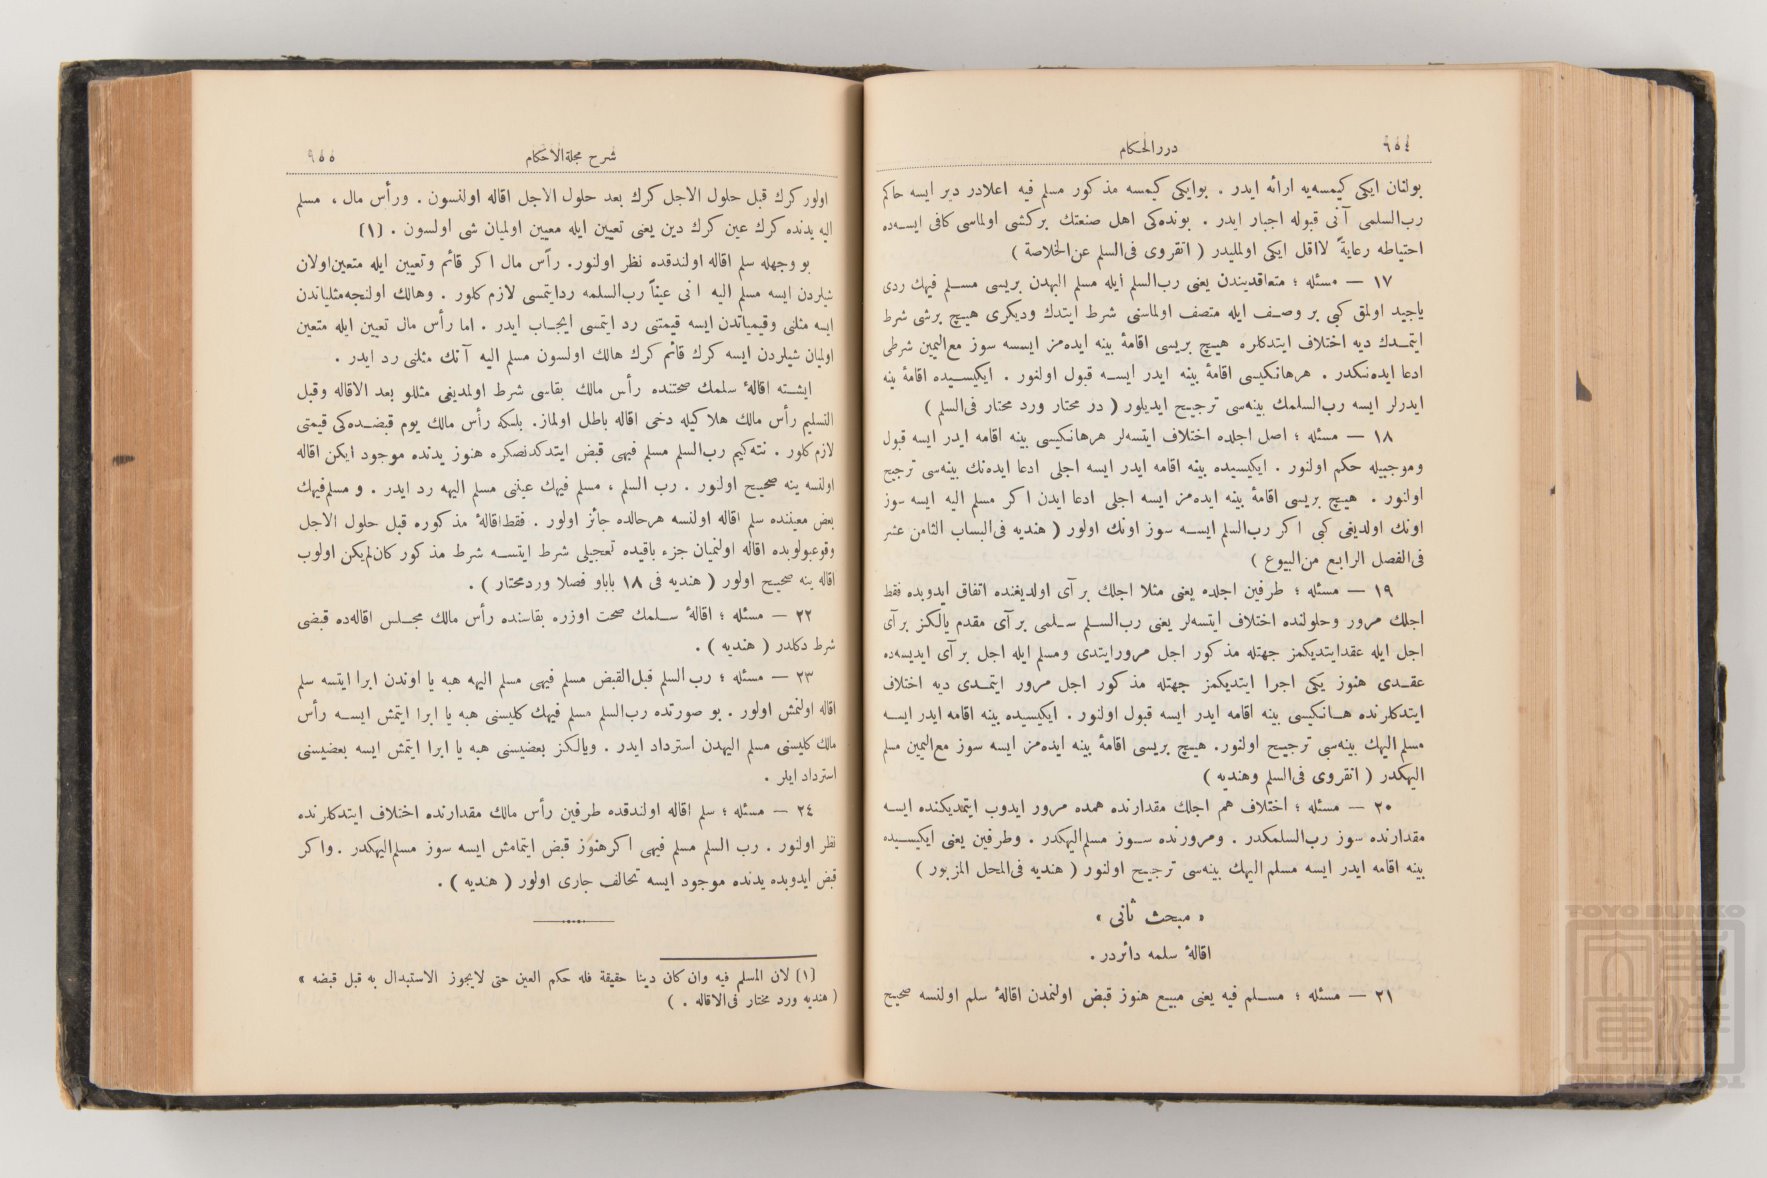 ٩٥٤
دررالحكام
بولنان ايكى كيمسه‌يه ارائه ايدر . بوايكى كيمسه مذكور مسلم فيه اعلادر دير ايسه حاكم
رب‌السلمى آنى قبوله اجبار ايدر . بونده‌كى اهل صنعتك بركشى اولماسى كافى ايسه‌ده
احتياطه رعايةً لااقل ايكى اولمليدر ( انقروى فى‌السلم عن‌الخلاصة )
١٧ — مسئله ؛ متعاقديندن يعنى رب‌السلم ايله مسلم اليهدن بريسى مسلم فيهك ردى
ياجيد اولمق كبى بر وصف ايله متصف اولماسنى شرط ايتدك وديكرى هيچ برشى شرط
ايتمدك ديه اختلاف ايتدكلره هيچ بريسى اقامهٔ بينه ايده‌مز ايسه سوز مع‌اليمين شرطى
ادعا ايده‌نكدر . هرهانكيسى اقامهٔ بينه ايدر ايسه قبول اولنور . ايكيسيده اقامهٔ بينه
ايدرلر ايسه رب‌السلمك بينه‌سى ترجيح ايديلور ( در مختار ورد محتار فى‌السلم )
١٨ — مسئله ؛ اصل اجلده اختلاف ايتسه‌لر هرهانكيسى بينه اقامه ايدر ايسه قبول
وموجبيله حكم اولنور . ايكيسيده بينه اقامه ايدر ايسه اجلى ادعا ايده‌نك بينه‌سى ترجيح
اولنور . هيچ بريسى اقامهٔ بينه ايده‌مز ايسه اجلى ادعا ايدن اكر مسلم اليه ايسه سوز
اونك اولديغى كبى اكر رب‌السلم ايسه سوز اونك اولور ( هنديه فى‌الباب الثامن عشر
فى‌الفصل الرابع من‌البيوع )
١٩ — مسئله ؛ طرفين اجلده يعنى مثلا اجلك برآى اولديغنده اتفاق ايدوبده فقط
اجلك مرور وحلولنده اختلاف ايتسه‌لر يعنى رب‌السلم سلمى برآى مقدم يالكز برآى
اجل ايله عقدايتديكمز جهتله مذكور اجل مرورايتدى ومسلم ايله اجل برآى ايديسه‌ده
عقدى هنوز يكى اجرا ايتديكمز جهتله مذكور اجل مرور ايتمدى ديه اختلاف
ايتدكلرنده هانكيسى بينه اقامه ايدر ايسه قبول اولنور . ايكيسيده بينه اقامه ايدر ايسه
مسلم اليهك بينه‌سى ترجيح اولنور. هيچ بريسى اقامهٔ بينه ايده‌مز ايسه سوز مع‌اليمين مسلم
اليهكدر ( انقروى فى‌السلم وهنديه )
٢٠ — مسئله ؛ اختلاف هم اجلك مقدارنده همده مرور ايدوب ايتمديكنده ايسه
مقدارنده سوز رب‌السلمكدر . ومرورنده سوز مسلم‌اليهكدر . وطرفين يعنى ايكيسيده
بينه اقامه ايدر ايسه مسلم اليهك بينه‌سى ترجيح اولنور ( هنديه فى‌المحل المزبور )
« مبحث ثانى »
اقالهٔ سلمه دائردر .
٢١ — مسئله ؛ مسلم فيه يعنى مبيع هنوز قبض اولنمدن اقالهٔ سلم اولنسه صحيح
شرح مجلة‌الاحكام
٩٥٥
اولور كرك قبل حلول الاجل كرك بعد حلول الاجل اقاله اولنسون . ورأس مال ، مسلم
اليه يدنده كرك عين كرك دين يعنى تعيين ايله معيين اولميان شى اولسون . (١)
بو وجهله سلم اقاله اولندقده نظر اولنور. رأس مال اكر قائم وتعيين ايله متعين‌اولان
شيلردن ايسه مسلم اليه انى عيناً رب‌السلمه ردايتمسى لازم كلور . وهالك اولنجه‌مثلياتدن
ايسه مثلنى وقيمياتدن ايسه قيمتنى رد ايتمسى ايجاب ايدر . اما رأس مال تعيين ايله متعين
اولميان شيلردن ايسه كرك قائم كرك هالك اولسون مسلم اليه آنك مثلنى رد ايدر .
ايشته اقالهٔ سلمك صحتنده رأس مالك بقاسى شرط اولمديغى مثللو بعد الاقاله وقبل
التسليم رأس مالك هلاكيله دخى اقاله باطل اولماز. بلكه رأس مالك يوم قبضده‌كى قيمتى
لازم كلور . نته‌كيم رب‌السلم مسلم فيهى قبض ايتدكدنصكره هنوز يدنده موجود ايكن اقاله
اولنسه ينه صحيح اولنور . رب السلم ، مسلم فيهك عينى مسلم اليهه رد ايدر . و مسلم‌فيهك
بعض معيننده سلم اقاله اولنسه هرحالده جائز اولور . فقط‌اقالهٔ مذكوره قبل حلول الاجل
وقوعبولوبده اقاله اولنميان جزء باقيده تعجيلى شرط ايتسه شرط مذكور كان‌لم‌يكن اولوب
اقاله ينه صحيح اولور ( هنديه فى ١٨ باباو فصلا وردمحتار ) .
٢٢ — مسئله ؛ اقالهٔ سلمك صحت اوزره بقاسنده رأس مالك مجلس اقاله‌ده قبضى
شرط دكلدر ( هنديه ) .
٢٣ — مسئله ؛ رب السلم قبل‌القبض مسلم فيهى مسلم اليهه هبه يا اوندن ابرا ايتسه سلم
اقاله اولنمش اولور . بو صورتده رب‌السلم مسلم فيهك كليسنى هبه يا ابرا ايتمش ايسه رأس
مالك كليسنى مسلم اليهدن استرداد ايدر . ويالكز بعضيسنى هبه يا ابرا ايتمش ايسه بعضيسنى
استرداد ايلر .
٢٤ — مسئله ؛ سلم اقاله اولندقده طرفين رأس مالك مقدارنده اختلاف ايتدكلرنده
نظر اولنور . رب السلم مسلم فيهى اكرهنوز قبض ايتمامش ايسه سوز مسلم‌اليهكدر . واكر
قبض ايدوبده يدنده موجود ايسه تحالف جارى اولور ( هنديه ) .
(١) لان المسلم فيه وان كان دينا حقيقة فله حكم العين حتى لايجوز الاستبدال به قبل قبضه »
( هنديه ورد مختار فى‌الاقاله . )
TOYO BUNKO